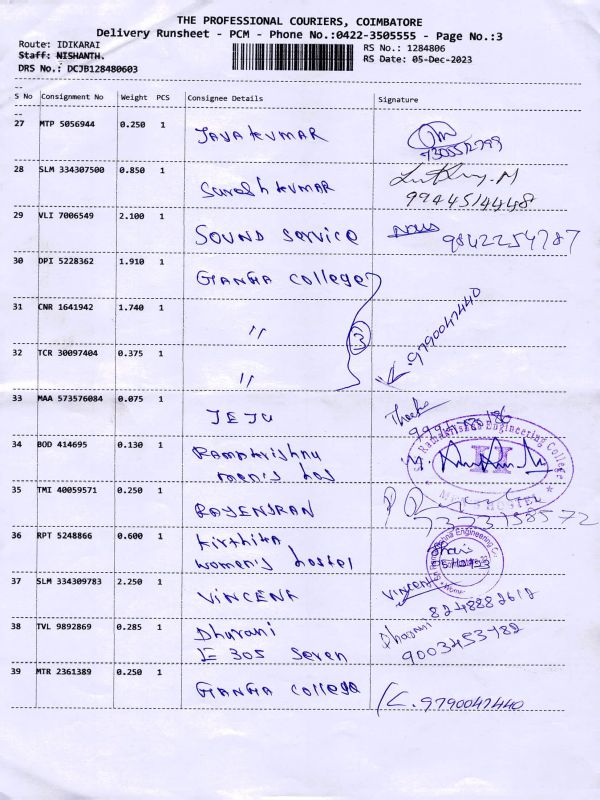 THE PROFESSIONAL COURIERS, COIMBATORE
Delivery Runsheet - PCM - Phone No.:0422-3505555 - Page No.:3
Route: IDIKARAI
RS No.: 1284806
Staff: NISHANTH.
RS Date: 05-Dec-2023
DRS No.: DCJB128480603
S No Consignment No Weight PCS Consignee Details Signature
27 MTP 5056944 0.250 1 JAYAKUMAR
28 SLM 334307500 0.850 1 Suresh kumar
9944514448
29 VLI 7006549 2.100 1 Sound service 9842254787
30 DPI 5228362 1.910 1 GANGA college
31 CNR 1641942 1.740 1 "
3
9790047440
32 TCR 30097404 0.375 1 "
33 MAA 573576084 0.075 1 JEJU
34 BOD 414695 0.130 1 Ramakrishnu
men's hos
Sri Ramakrishna Engineering College
II
MEN'S HOSTEL
35 TMI 40059571 0.250 1 RAJENDRAN
7373158572
36 RPT 5248866 0.600 1 Kirthika
women's hostel
37 SLM 334309783 2.250 1 VINCENT Vincent
8248882612
38 TVL 9892869 0.285 1 Dharani Dharani
E 305 Seven 9003453482
39 MTR 2361389 0.250 1 GANGA college 9790047440